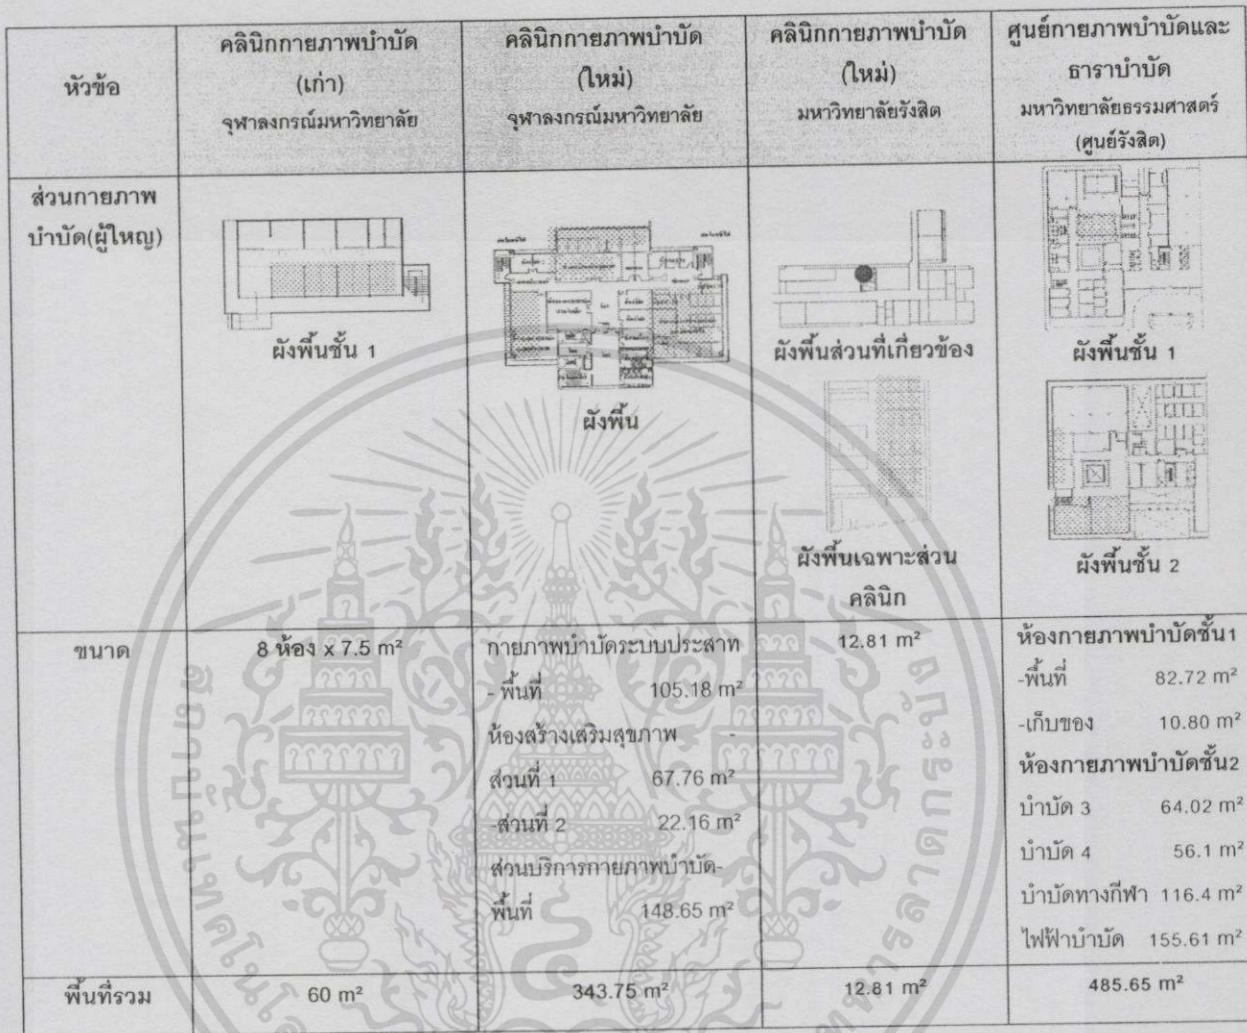 หัวข้อ
คลินิกกายภาพบำบัด
(เก่า)
จุฬาลงกรณ์มหาวิทยาลัย
คลินิกกายภาพบำบัด
(ใหม่)
จุฬาลงกรณ์มหาวิทยาลัย
คลินิกกายภาพบำบัด
(ใหม่)
มหาวิทยาลัยรังสิต
ศูนย์กายภาพบำบัดและ
ธาราบำบัด
มหาวิทยาลัยธรรมศาสตร์
(ศูนย์รังสิต)
ส่วนกายภาพ
บำบัด(ผู้ใหญ่)
ผังพื้นชั้น 1
ผังพื้น
ผังพื้นส่วนที่เกี่ยวข้อง
ผังพื้นเฉพาะส่วน
คลินิก
ผังพื้นชั้น 1
ผังพื้นชั้น 2
ขนาด
8 ห้อง x 7.5 m²
กายภาพบำบัดระบบประสาท
- พื้นที่ 105.18 m²
ห้องสร้างเสริมสุขภาพ -
ส่วนที่ 1 67.76 m²
-ส่วนที่ 2 22.16 m²
ส่วนบริการกายภาพบำบัด-
พื้นที่ 148.65 m²
12.81 m²
ห้องกายภาพบำบัดชั้น1
-พื้นที่ 82.72 m²
-เก็บของ 10.80 m²
ห้องกายภาพบำบัดชั้น2
บำบัด 3 64.02 m²
บำบัด 4 56.1 m²
บำบัดทางกีฬา 116.4 m²
ไฟฟ้าบำบัด 155.61 m²
พื้นที่รวม
60 m²
343.75 m²
12.81 m²
485.65 m²